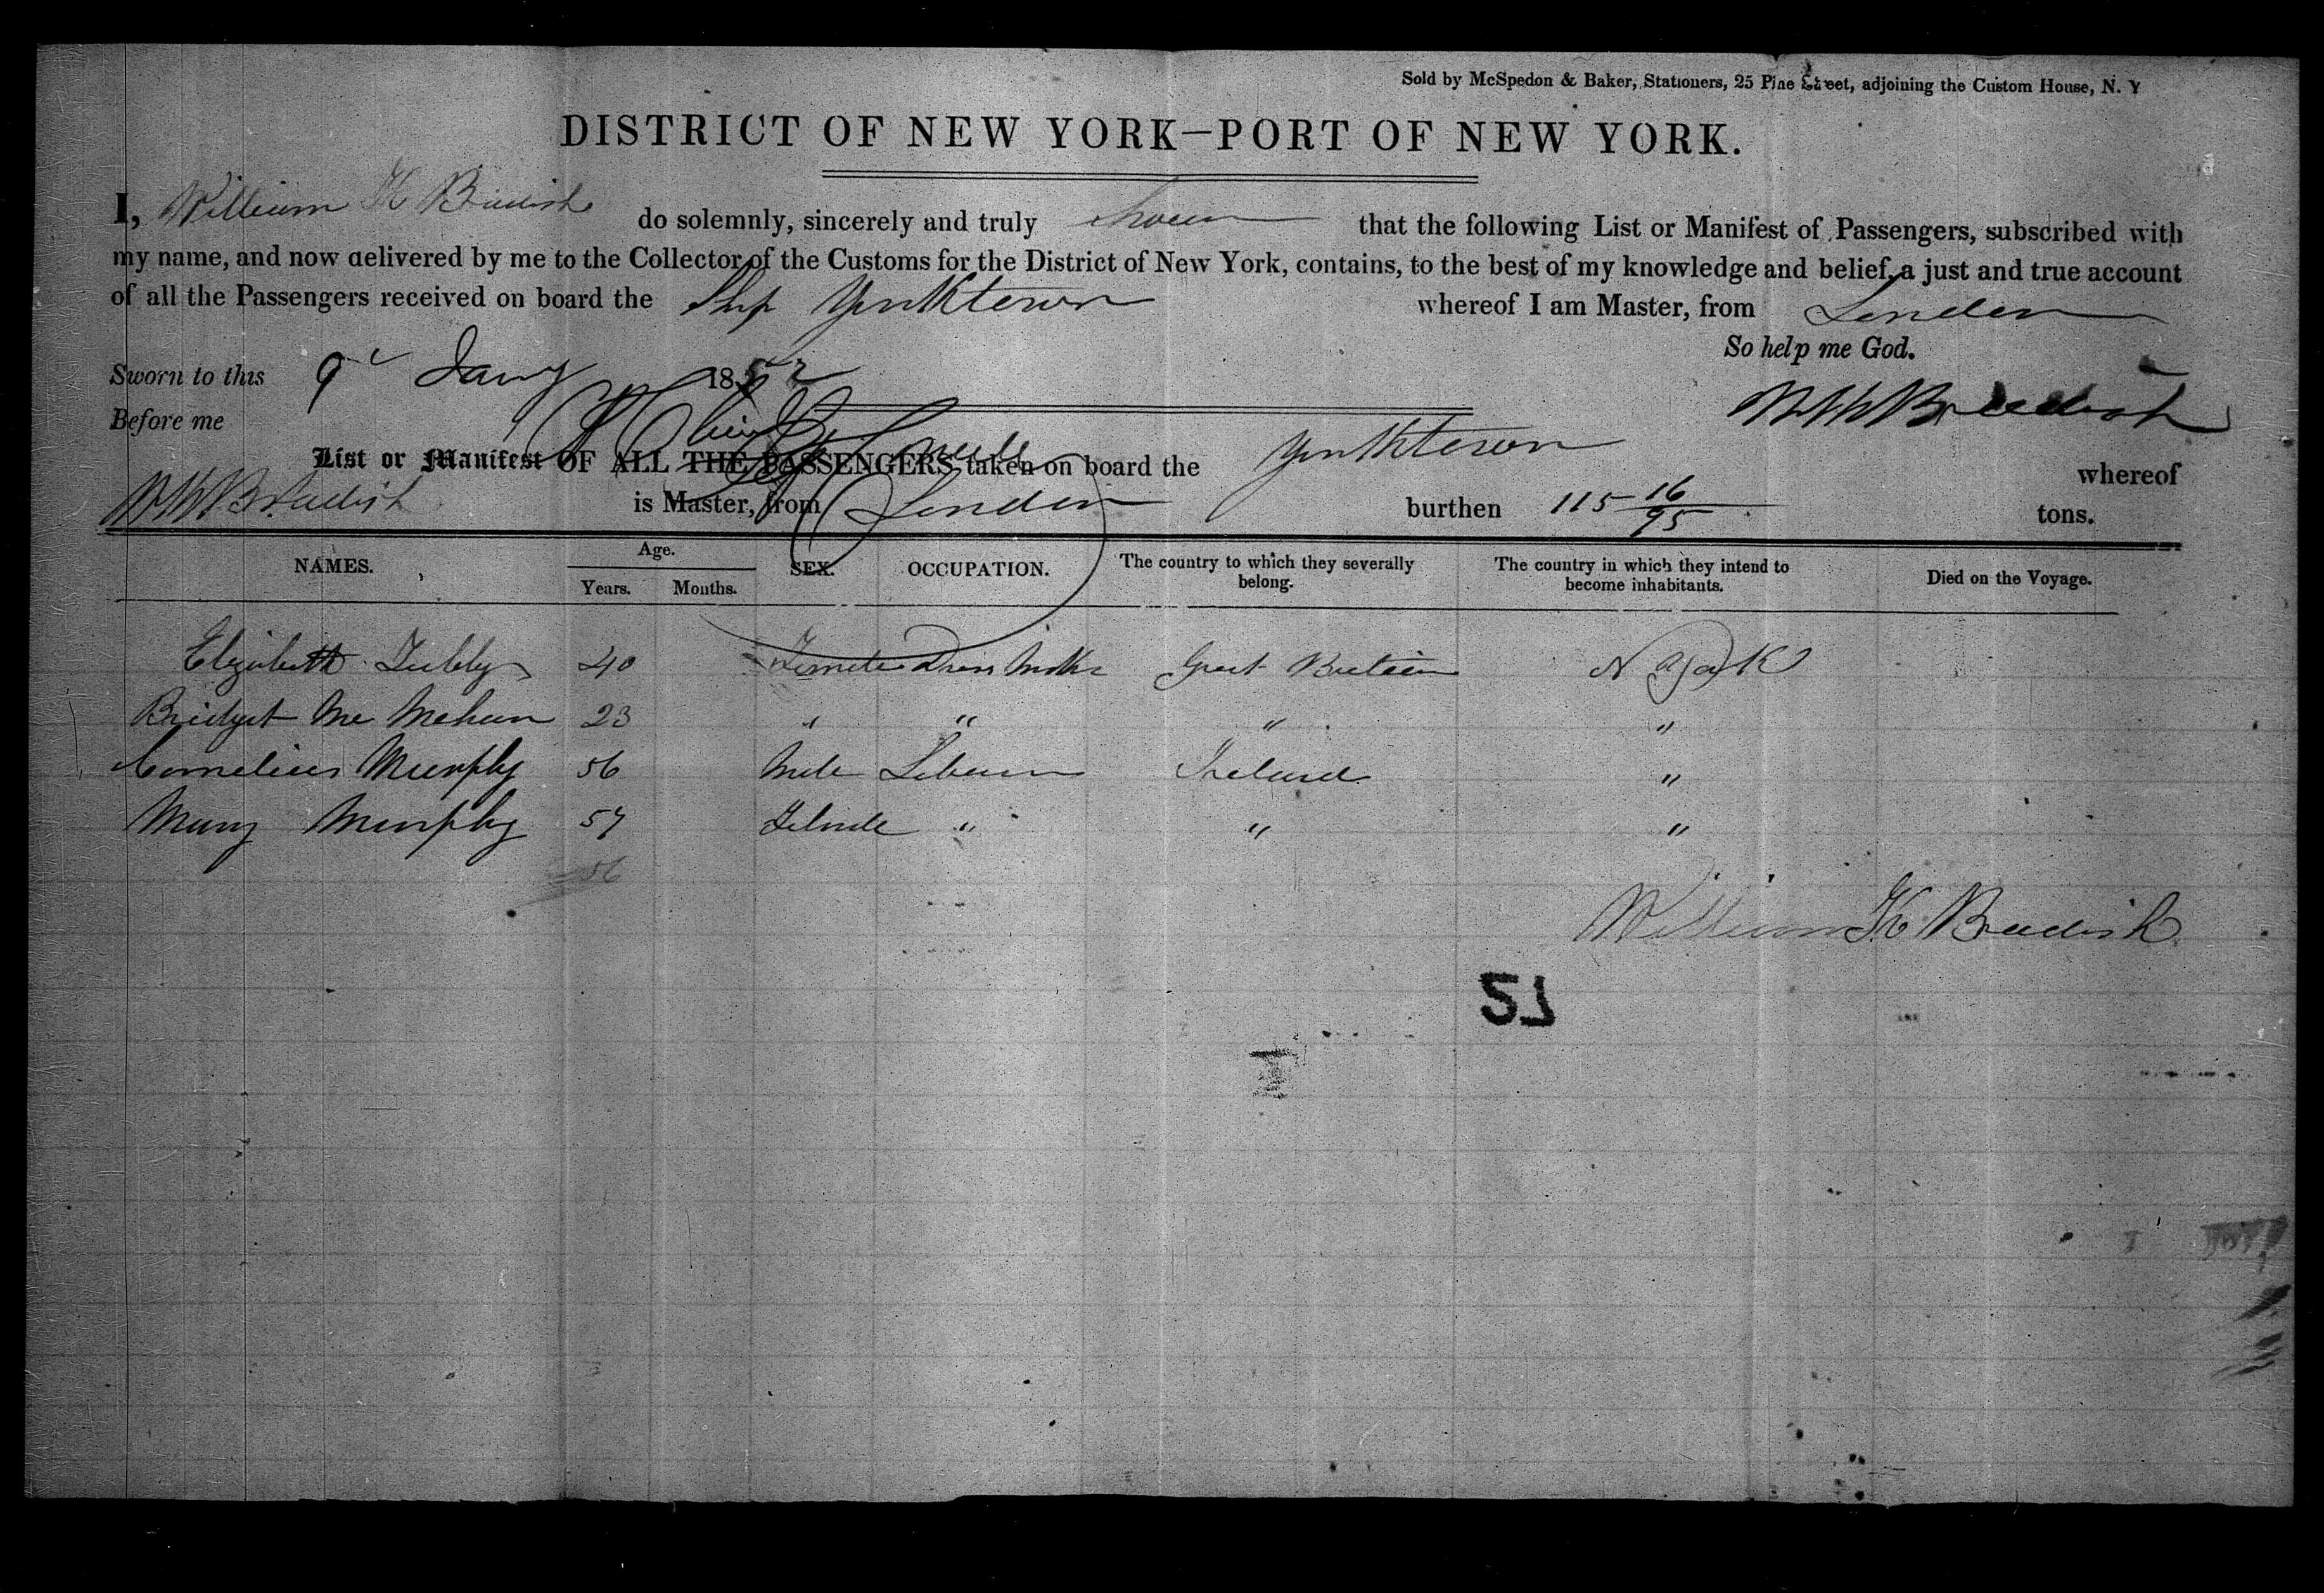 Sold by McSpedon & Baker, Stationers, 25 Pine Street, adjoining the Custom House, N. Y
DISTRICT OF NEW YORK—PORT OF NEW YORK.
I, William H Bradish do solemnly, sincerely and truly swear that the following List or Manifest of Passengers, subscribed with
my name, and now delivered by me to the Collector of the Customs for the District of New York, contains, to the best of my knowledge and belief, a just and true account
of all the Passengers received on board the Ship Yorktown whereof I am Master, from London
So help me God.
Sworn to this 9 Jany 1852
Before me
W H Bradish
List or Manifest OF ALL THE PASSENGERS taken on board the Yorktown whereof
W H Bradish is Master, from London burthen 115 16/95 tons.
NAMES. Age. SEX. OCCUPATION. The country to which they severally belong. The country in which they intend to become inhabitants. Died on the Voyage.
Years. Months.
Elizabeth Tubby 40 Female Dress Makr Great Britain N York
Bridget Mc Mahan 23 " " " "
Cornelius Murphy 56 Male Laborer Ireland "
Mary Murphy 57 Female " " "
56
William H Bradish